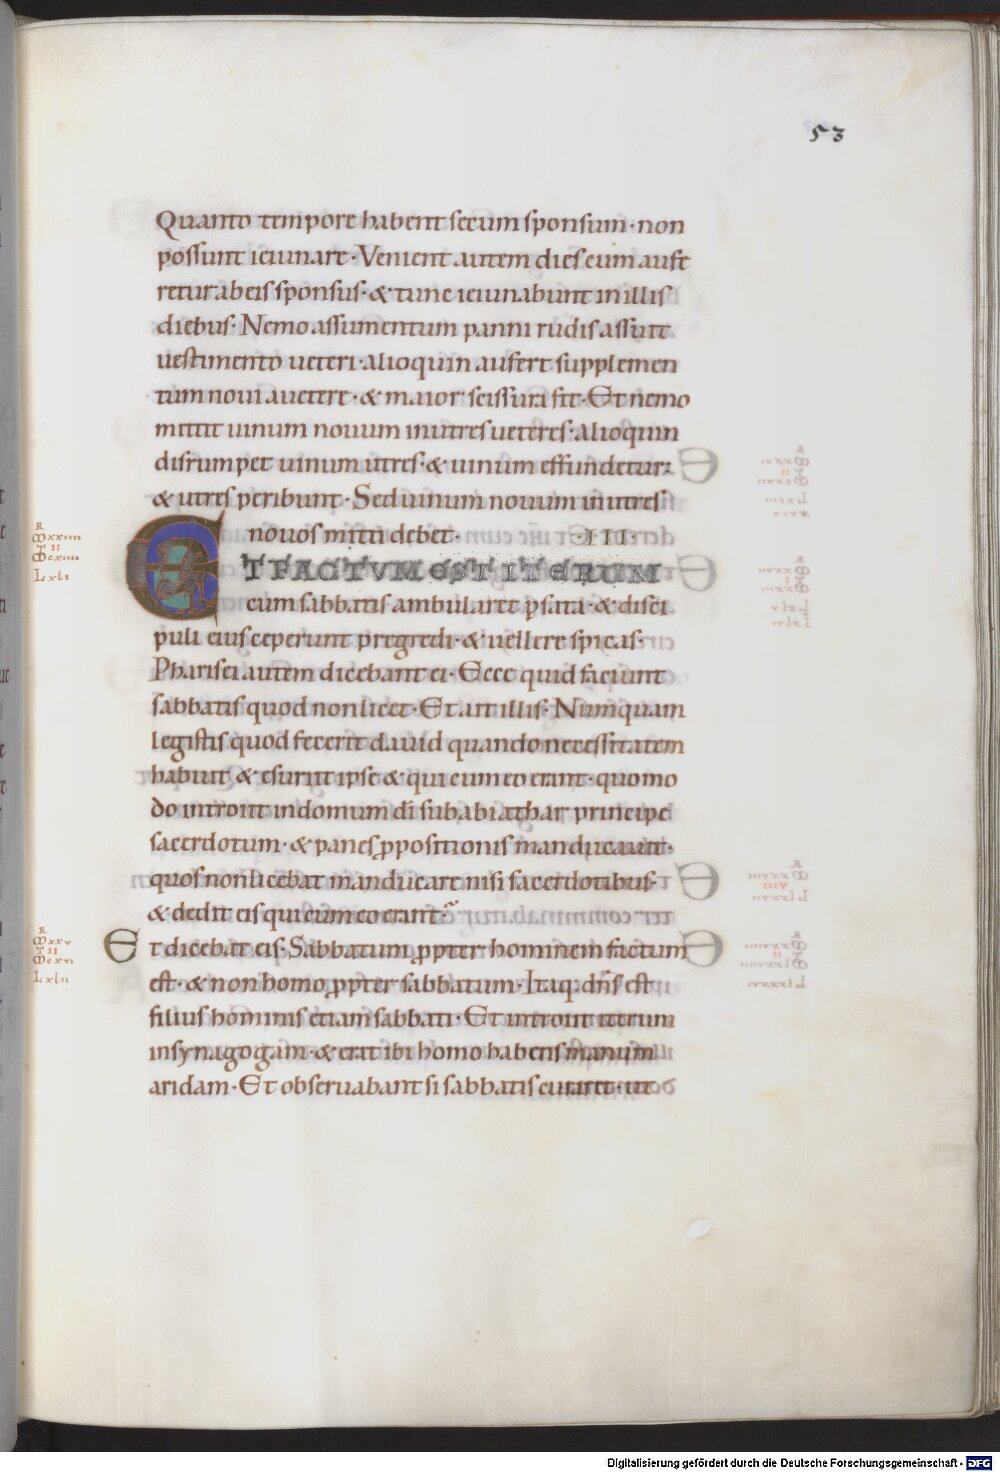 53
Quanto tempore habent secum sponsum · non
possunt ieiunare · Venient autem dies cum aufe
retur ab eis sponsus · & tunc ieiunabunt in illis
diebus · Nemo assumentum panni rudis assuit
vestimento veteri · alioquin aufert supplemen
tum novum a veteri · & maior scissura fit · Et nemo
mittit uinum nouum in utres ueteres · alioquin
disrumpet uinum utres · & uinum effundetur ·
& utres peribunt · Sed uinum nouum in utres
nouos mitti debet · III ·
ET FACTVM EST ITERUM
cum sabbatis ambularet p sata · & disci
puli eius ceperunt pregredi · & uellere spicas ·
Pharisei autem dicebant ei · Ecce quid faciunt
sabbatis quod non licet · Et ait illis · Numquam
legistis quod fecerit dauid quando necessitatem
habuit & esuriit ipse & qui cum eo erant · quomo
do introiit in domum di sub abiathar principe
sacerdotum · & panes ppositionis manducauit ·
quos non licebat manducare nisi sacerdotibus ·
& dedit eis qui cum eo erant ·
Et dicebat eis · Sabbatum ppter hominem factum
est · & non homo ppter sabbatum · Itaq; dns est
filius hominis etiam sabbati · Et introiit iterum
in synagogam · & erat ibi homo habens manum
aridam · Et obseruabant si sabbatis curaret · ut
Digitalisierung gefördert durch die Deutsche Forschungsgemeinschaft - DFG